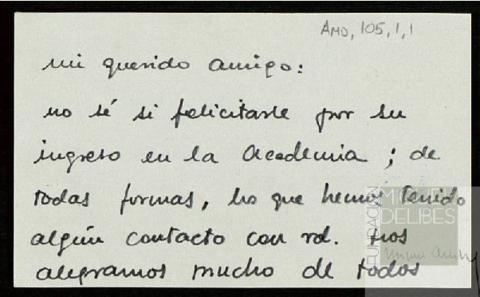 AMD, 105, 1, 1
mi querido amigo:
no sé si felicitarle por su
ingreso en la Academia; de
todas formas, los que hemos tenido
algún contacto con vd. nos
alegramos mucho de todos
FUNDACIÓN
MIGUEL
DELIBES